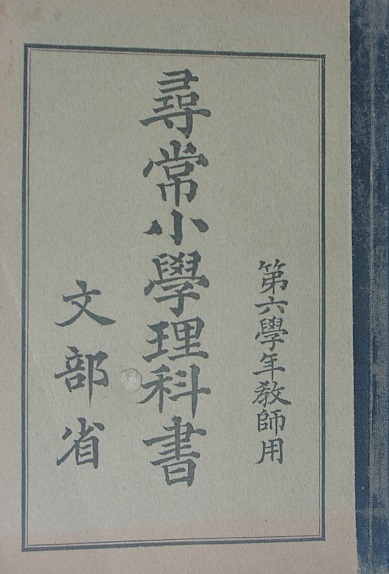 第六學年敎師用
尋常小學理科書
文部省